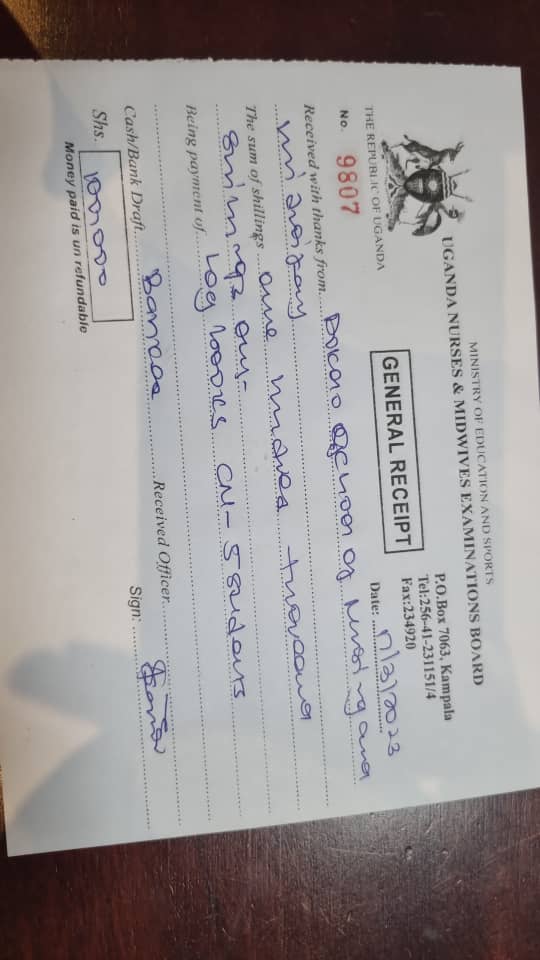 MINISTRY OF EDUCATION AND SPORTS
UGANDA NURSES & MIDWIVES EXAMINATIONS BOARD
P.O.Box 7063, Kampala
Tel:256-41-231151/4
Fax:234920
THE REPUBLIC OF UGANDA
GENERAL RECEIPT
No. 9807
Date: 17/3/2023
Received with thanks from School of Nursing and
Midwifery
The sum of shillings one hundred thousand
Shillings only
Being payment of Log books CM - 5 Students
Cash/Bank Draft Received Officer
Shs. 100,000 Sign:
Money paid is un refundable